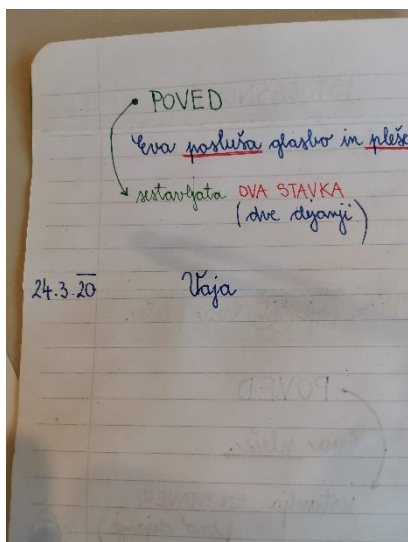 POVED
Eva posluša glasbo in pleše
sestavljata DVA STAVKA
(dve dejanji)
24.3.20 Vaja